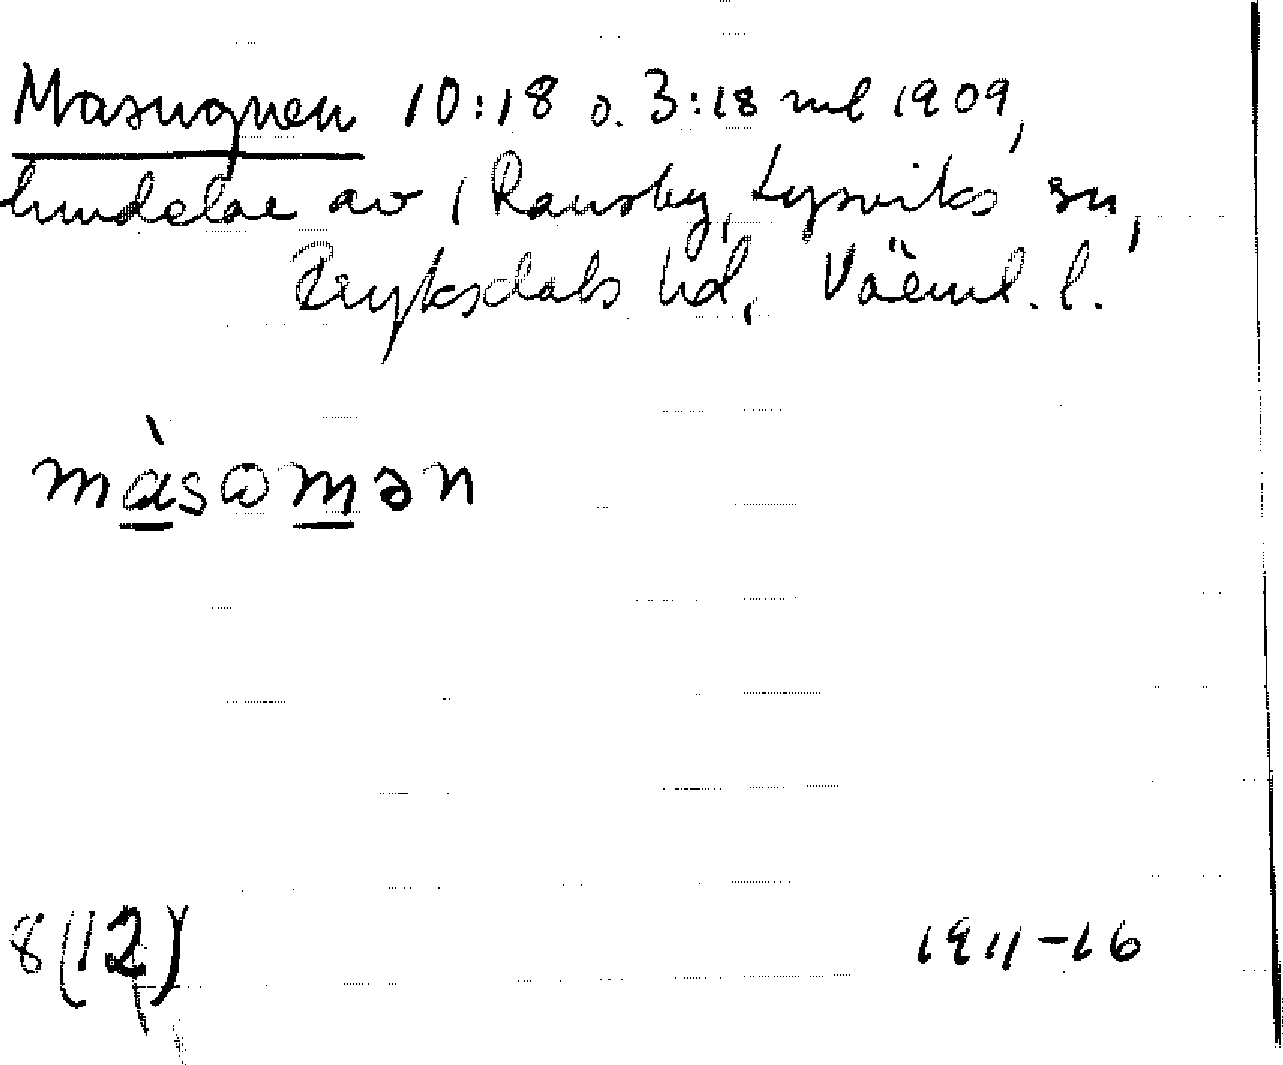 Masugnen 10:18 o. 3:18 mtl 1909,
hemdelar av 1 Ransby, Lysviks sn,
Fryksdals hd, Värml. l.
màsωmən
8(12)
1911-16